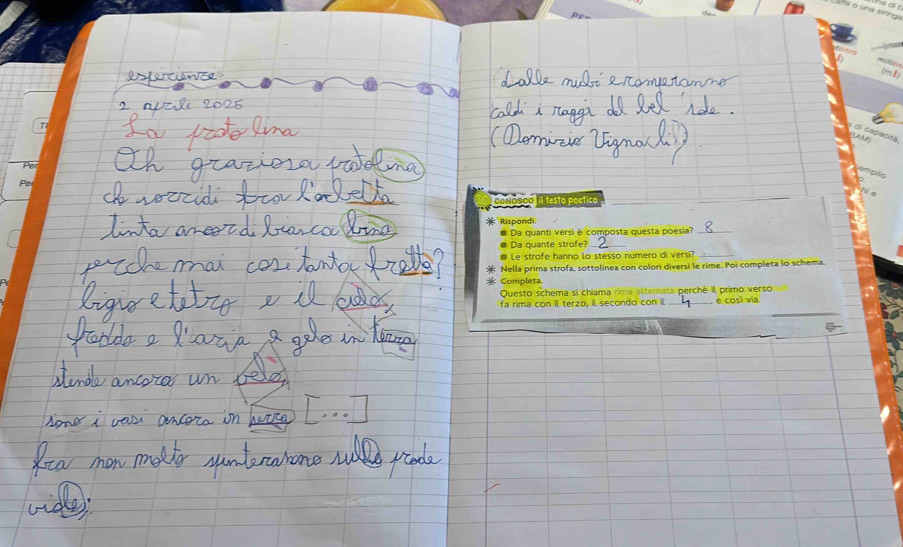 esperienze
2 aprile 2025
La pratolina
Oh graziosa pratolina
che sorridi tra l'erbetta
tinta ancor di bianca brina
perche mai cosí tanta fretta?
Bigio e tetro e il cielo,
fredda e l'aria e gelo in terra
stende ancora un velo,
sono i vasi ancora in serra [...]
Fra non molto spunteranno sulle prode
viole;
Dalle nubi eromperanno
caldi i raggi del bel sole.
(Domizio Vignali)
CONOSCO il testo poetico
Rispondi.
Da quanti versi è composta questa poesia? 8
Da quante strofe? 2
Le strofe hanno lo stesso numero di versi?
Nella prima strofa, sottolinea con colori diversi le rime. Poi completa lo schema.
Completa.
Questo schema si chiama rima alternata perché il primo verso
fa rima con il terzo, il secondo con il 4, e così via.